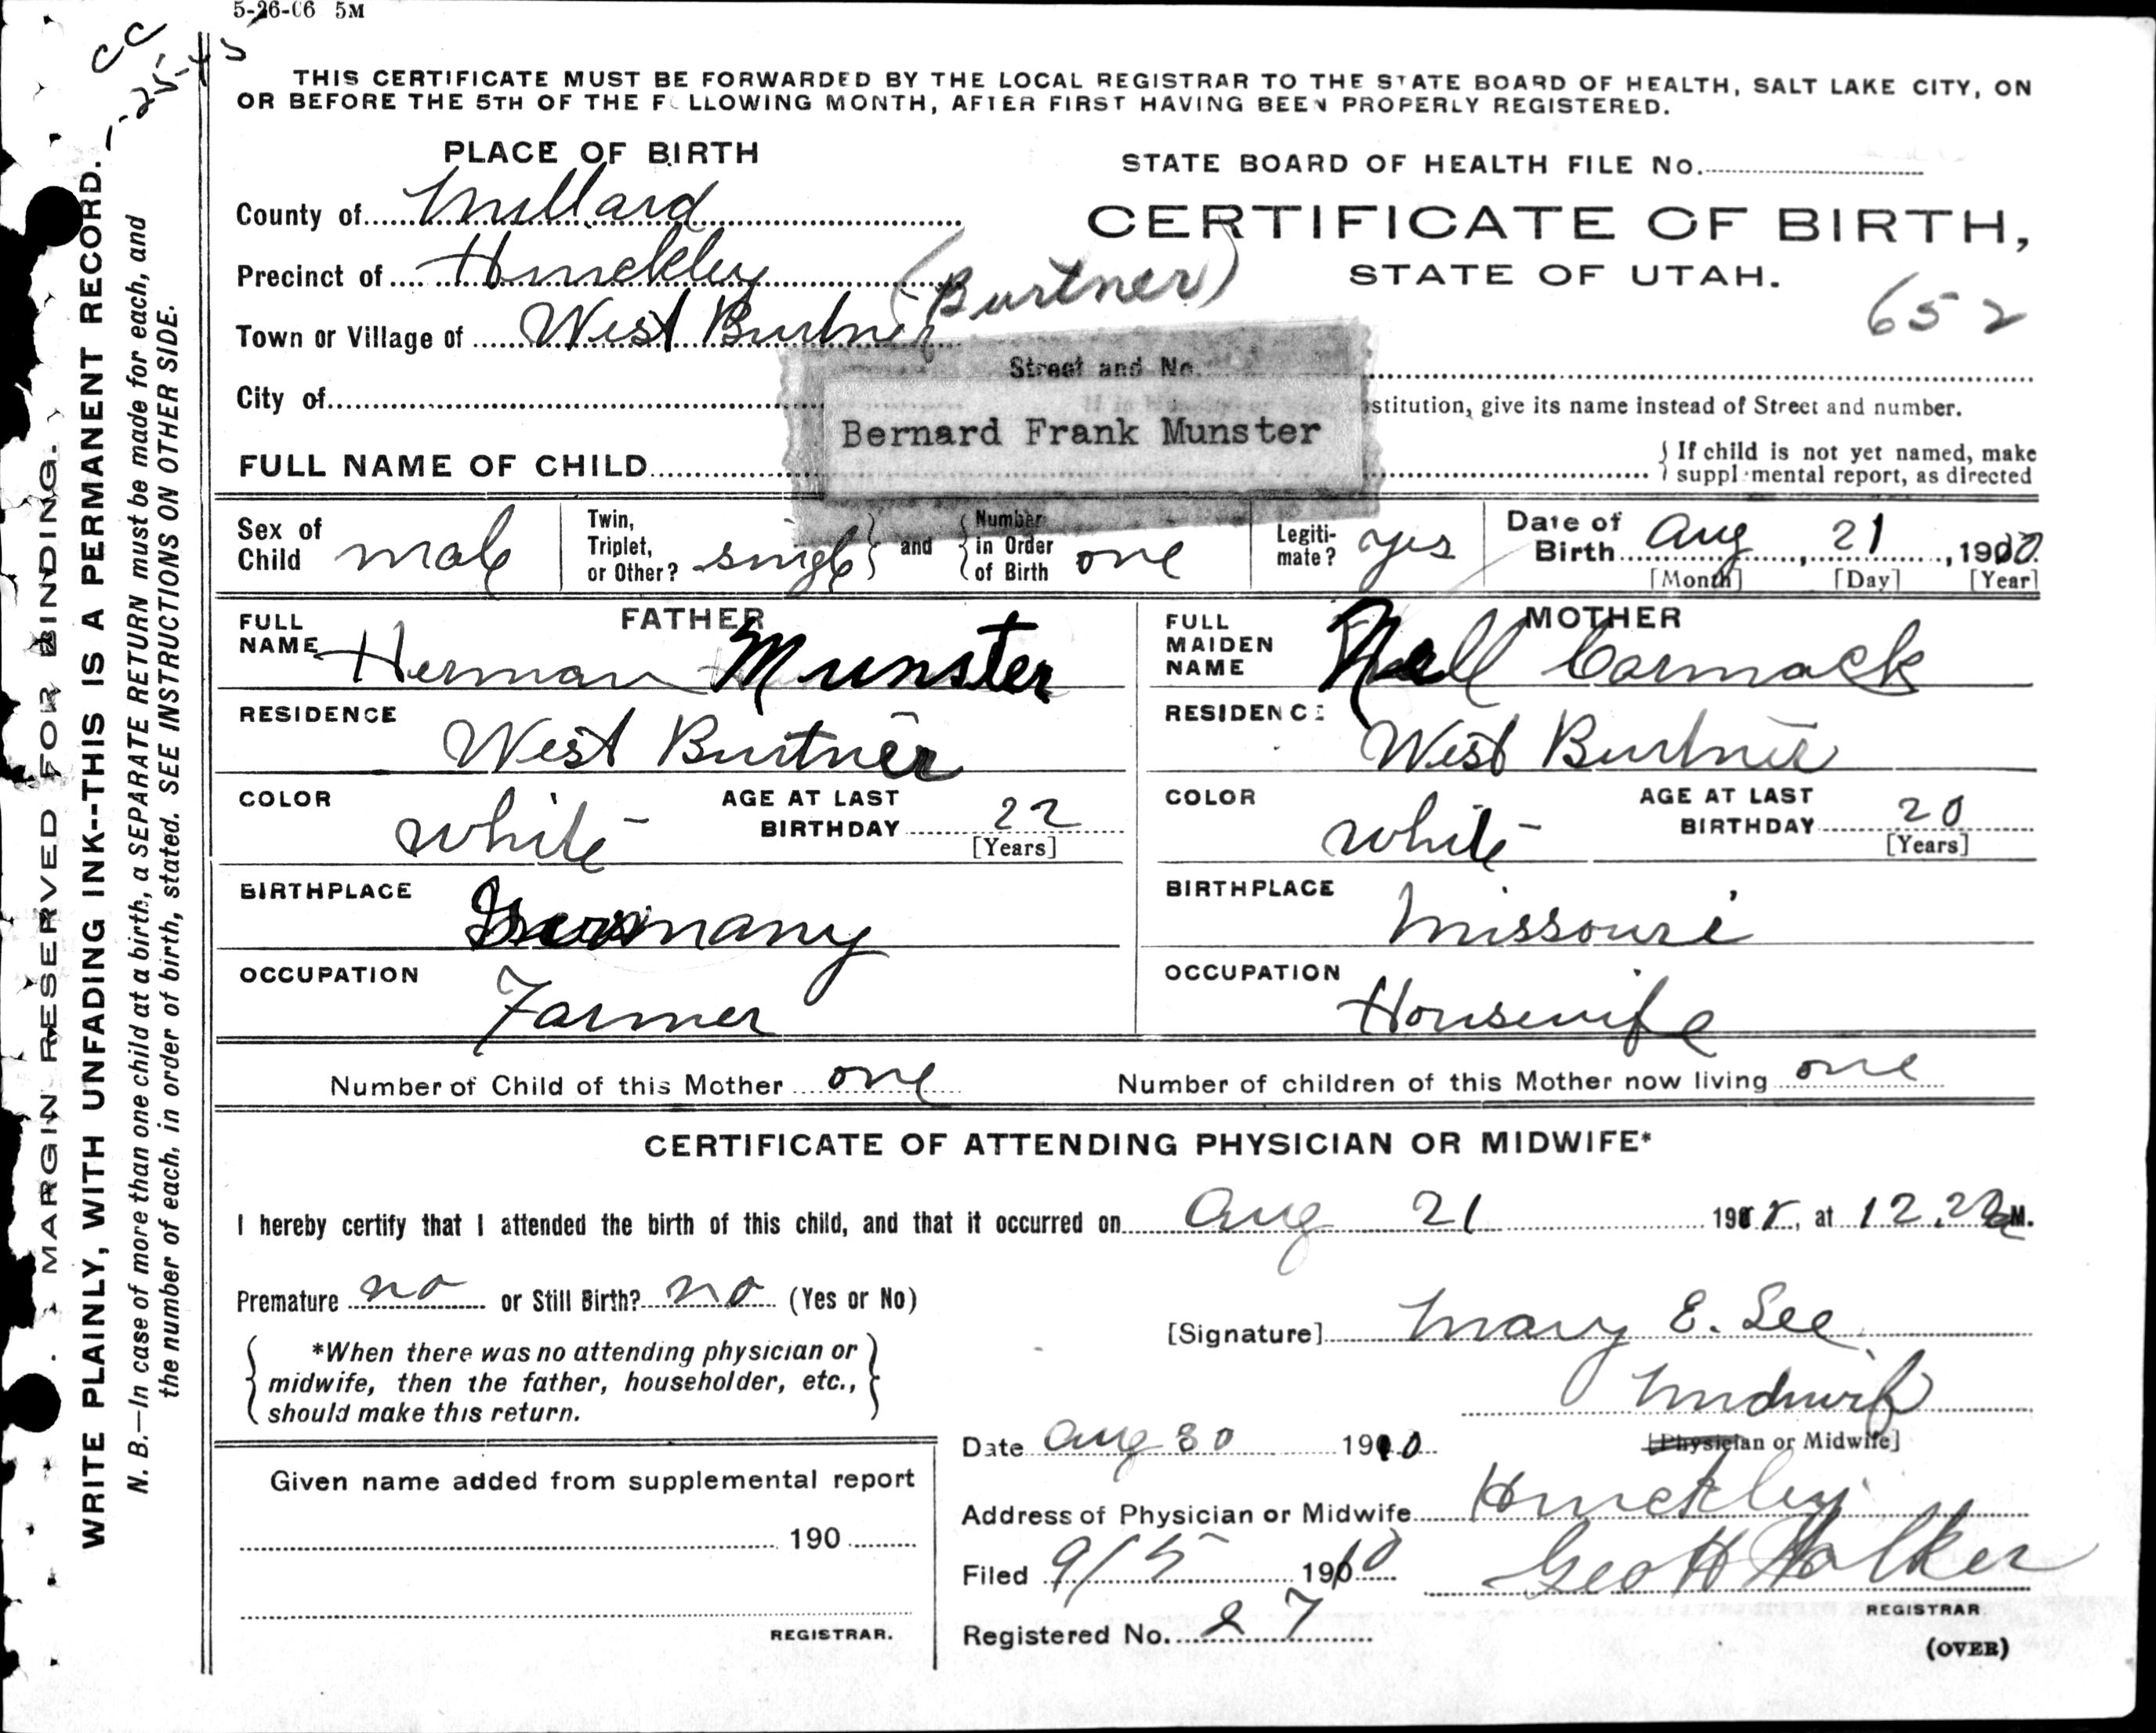 5-26-06 5M
CC
1-25-45
THIS CERTIFICATE MUST BE FORWARDED BY THE LOCAL REGISTRAR TO THE STATE BOARD OF HEALTH, SALT LAKE CITY, ON
OR BEFORE THE 5TH OF THE FOLLOWING MONTH, AFTER FIRST HAVING BEEN PROPERLY REGISTERED.
MARGIN RESERVED FOR BINDING.
WRITE PLAINLY, WITH UNFADING INK--THIS IS A PERMANENT RECORD.
N. B.—In case of more than one child at a birth, a SEPARATE RETURN must be made for each, and
the number of each, in order of birth, stated. SEE INSTRUCTIONS ON OTHER SIDE.
PLACE OF BIRTH
STATE BOARD OF HEALTH FILE No.
County of Millard
CERTIFICATE OF BIRTH,
Precinct of Hinckley (Burtner)
STATE OF UTAH.
652
Town or Village of West Burtner
Street and No.
City of
stitution, give its name instead of Street and number.
Bernard Frank Munster
FULL NAME OF CHILD
If child is not yet named, make
supplemental report, as directed
Sex of Child male
Twin, Triplet, or Other? single and Number in Order of Birth one
Legiti-mate? yes
Date of Birth Aug 21, 1910
[Month] [Day] [Year]
FATHER
FULL NAME Herman Munster
MOTHER
FULL MAIDEN NAME Nell Cormack
RESIDENCE West Burtner
RESIDENCE West Burtner
COLOR white AGE AT LAST BIRTHDAY 22
[Years]
COLOR white AGE AT LAST BIRTHDAY 20
[Years]
BIRTHPLACE Germany
BIRTHPLACE Missouri
OCCUPATION Farmer
OCCUPATION Housewife
Number of Child of this Mother one Number of children of this Mother now living one
CERTIFICATE OF ATTENDING PHYSICIAN OR MIDWIFE*
I hereby certify that I attended the birth of this child, and that it occurred on Aug 21 19 , at 12. M.
Premature no or Still Birth? no (Yes or No)
[Signature] Mary E. Lee
*When there was no attending physician or
midwife, then the father, householder, etc.,
should make this return.
Midwif
[Physician or Midwife]
Date Aug 30 1910
Given name added from supplemental report
190
REGISTRAR.
Address of Physician or Midwife Hinckley
Filed 9/5 1910 Geo H Walker
REGISTRAR
Registered No. 27
(OVER)